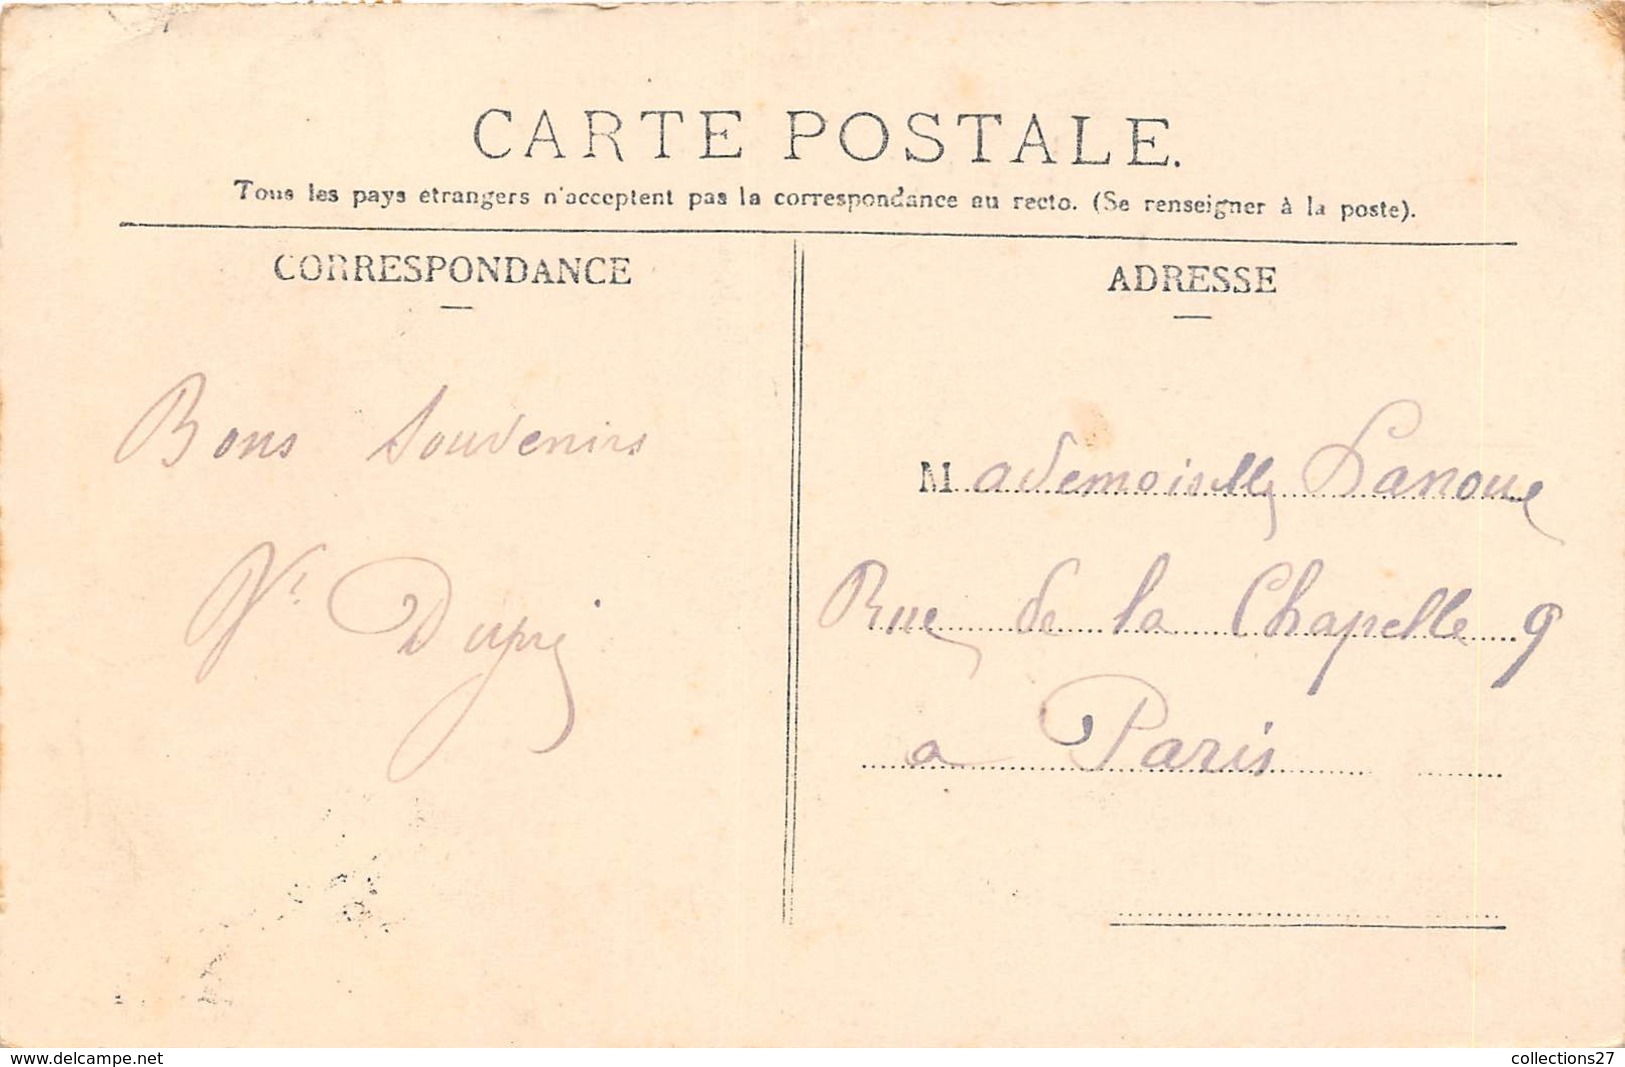 CARTE POSTALE.
Tous les pays étrangers n'acceptent pas la correspondance au recto. (Se renseigner à la poste).
CORRESPONDANCE
Bons Souvenirs
ADRESSE
Mademoiselle Lanoue
Rue de la Chapelle 9
a Paris
www.delcampe.net
collections27